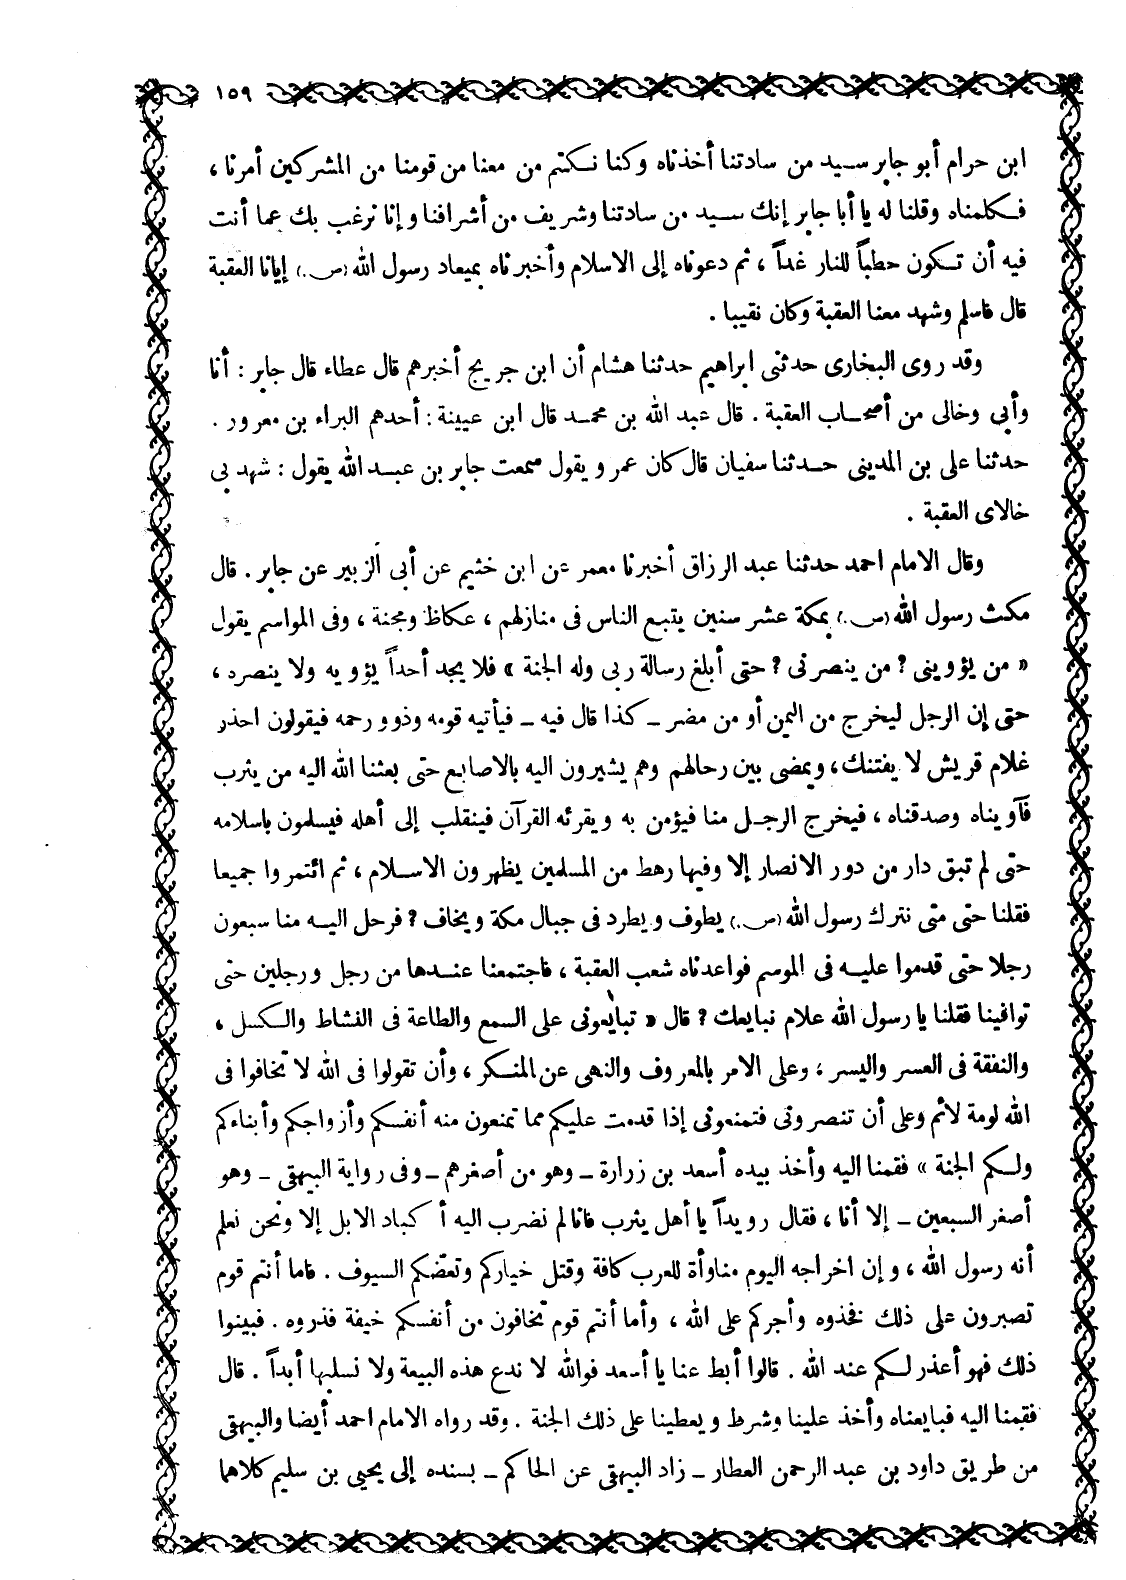 ١٥٩
ابن حرام أبو جابر سـيد من سادتنا أخذناه وكنا نـكتم من معنا من قومنا من المشركين أمرنا ،
فـكلمناه وقلنا له يا أبا جابر إنك سـيد من سادتنا وشريف من أشرافنا و إنا نرغب بك عما أنت
فيه أن تـكون حطباً للنار غداً ، ثم دعوناه إلى الاسلام وأخبرناه بميعاد رسول الله (ص.) إيانا العقبة
قال فاسلم وشهد معنا العقبة وكان نقيبا .
وقد روى البخارى حدثنى ابراهيم حدثنا هشام أن ابن جريج أخبرهم قال عطاء قال جابر : أنا
وأبى وخالى من أصحـاب العقبة . قال عبد الله بن محمـد قال ابن عيينة : أحدهم البراء بن معرور .
حدثنا على بن المدينى حـدثنا سفيان قال كان عمرو يقول سمعت جابر بن عبـد الله يقول : شهد بى
خالاى العقبة .
وقال الامام احمد حدثنا عبد الرزاق أخبرنا معمر عن ابن خثيم عن أبى الزبير عن جابر . قال
مكث رسول الله (ص.) بمكة عشر سنين يتبع الناس فى منازلهم ، عكاظ ومجنة ، وفى المواسم يقول
« من يؤوينى ? من ينصرنى ? حتى أبلغ رسالة ربى وله الجنة » فلا يجد أحداً يؤويه ولا ينصره ،
حتى إن الرجل ليخرج من اليمن أو من مضر ــ كذا قال فيه ــ فيأتيه قومه وذوو رحمه فيقولون احذر
غلام قريش لا يفتنك ، ويمضى بين رحالهم وهم يشيرون اليه بالاصابع حتى بعثنا الله اليه من يثرب
فآويناه وصدقناه ، فيخرج الرجـل منا فيؤمن به ويقرئه القرآن فينقلب إلى أهله فيسلمون باسلامه
حتى لم تبق دار من دور الانصار إلا وفيها رهط من المسلمين يظهرون الاسـلام ، ثم ائتمروا جميعا
فقلنا حتى متى نترك رسول الله (ص.) يطوف ويطرد فى جبال مكة ويخاف ? فرحل اليـه منا سبعون
رجلا حتى قدموا عليـه فى الموسم فواعدناه شعب العقبة ، فاجتمعنا عنـدها من رجل ورجلين حتى
توافينا فقلنا يا رسول الله علام نبايعك ? قال « تبايعونى على السمع والطاعة فى النشاط والـكسل ،
والنفقة فى العسر واليسر ، وعلى الامر بالمعروف والنهى عن المنـكر ، وأن تقولوا فى الله لا تخافوا فى
الله لومة لائم وعلى أن تنصرونى فتمنعونى إذا قدمت عليكم مما تمنعون منه أنفسكم وأزواجكم وأبناءكم
ولـكم الجنة » فقمنا اليه وأخذ بيده أسعد بن زرارة ــ وهو من أصغرهم ــ وفى رواية البيهقى ــ وهو
أصغر السبعين ــ إلا أنا ، فقال رويداً يا أهل يثرب فانا لم نضرب اليه أكباد الابل إلا ونحن نعلم
أنه رسول الله ، و إن اخراجه اليوم مناوأة للعرب كافة وقتل خياركم وتعضكم السيوف . فاما أنتم قوم
تصبرون على ذلك فخذوه وأجركم على الله ، وأما أنتم قوم تخافون من أنفسكم خيفة فذروه . فبينوا
ذلك فهو أعذر لـكم عند الله . قالوا أبط عنا يا أسعد فوالله لا ندع هذه البيعة ولا نسلبها أبداً . قال
فقمنا اليه فبايعناه وأخذ علينا وشرط ويعطينا على ذلك الجنة . وقد رواه الامام احمد أيضا والبيهقى
من طريق داود بن عبد الرحمن العطار ــ زاد البيهقى عن الحاكم ــ بسنده إلى يحيى بن سليم كلاهما